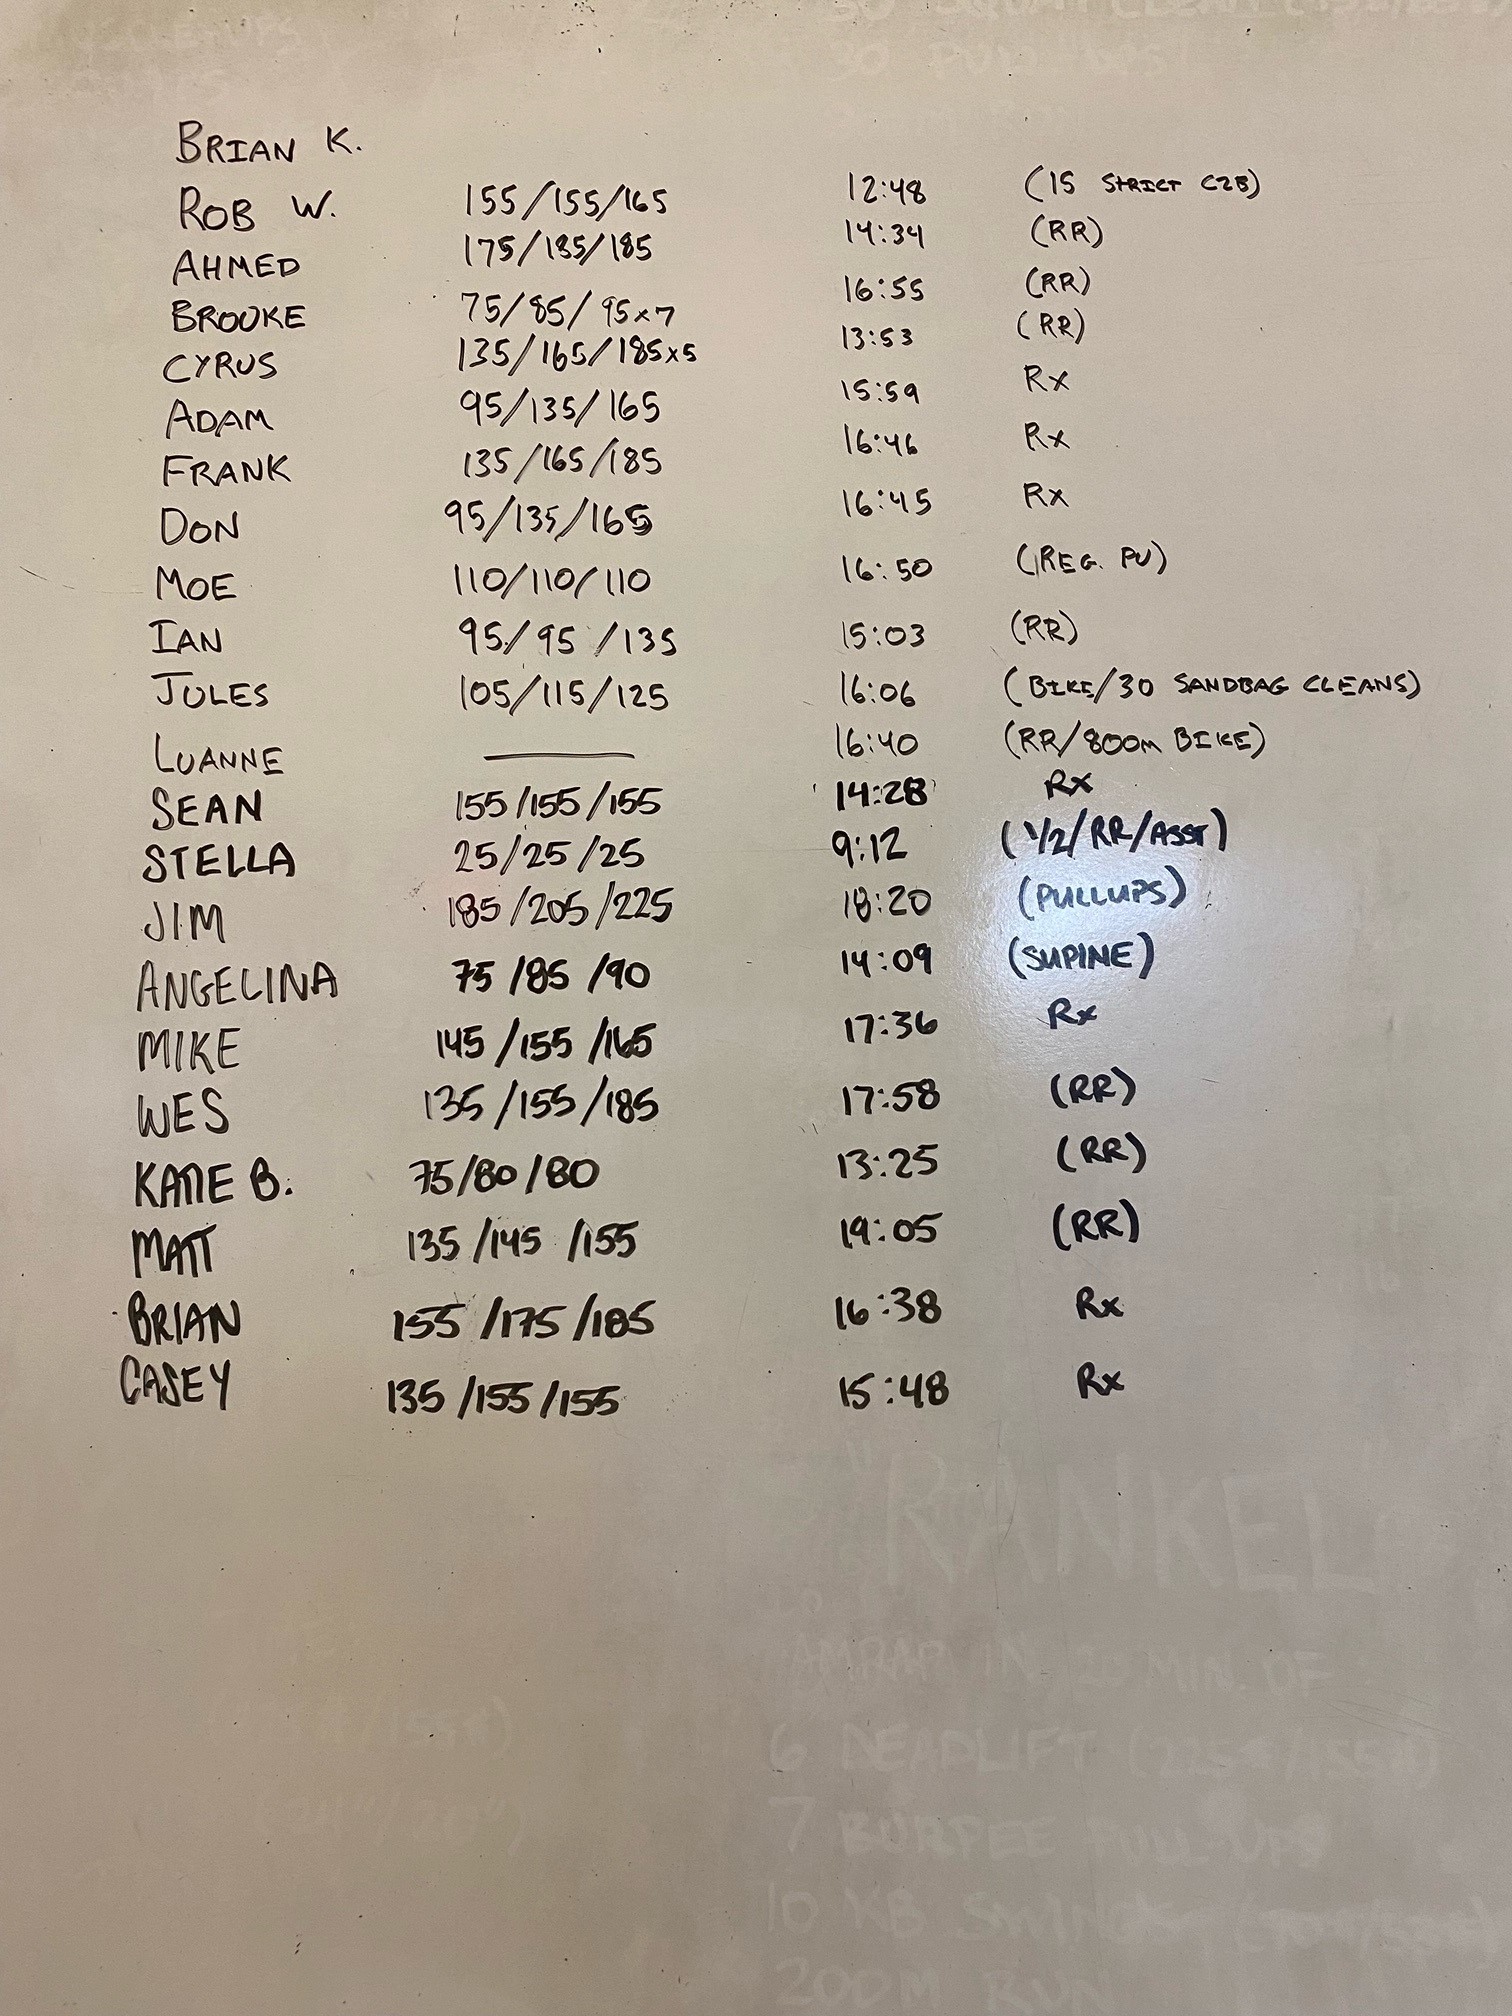 30 PULL-UPS
BRIAN K.
ROB W. 155/155/165 12:48 (15 STRICT C2B)
AHMED 175/185/185 14:34 (RR)
BROOKE 75/85/95x7 16:55 (RR)
CYRUS 135/165/185x5 13:53 (RR)
ADAM 95/135/165 15:59 Rx
FRANK 135/165/185 16:46 Rx
DON 95/135/165 16:45 Rx
MOE 110/110/110 16:50 (REG. PU)
IAN 95/95/135 15:03 (RR)
JULES 105/115/125 16:06 (BIKE/30 SANDBAG CLEANS)
LUANNE —— 16:40 (RR/800m BIKE)
SEAN 155/155/155 14:28 Rx
STELLA 25/25/25 9:12 (1/2/RR/ASST)
JIM 185/205/225 18:20 (PULLUPS)
ANGELINA 75/85/90 14:09 (SUPINE)
MIKE 145/155/165 17:36 Rx
WES 135/155/185 17:58 (RR)
KATIE B. 75/80/80 13:25 (RR)
MATT 135/145/155 19:05 (RR)
BRIAN 155/175/185 16:38 Rx
CASEY 135/155/155 15:48 Rx
"RANKEL"
AMRAP IN 20 MIN. OF
6 DEADLIFT (225#/155#)
7 BURPEE PULL-UPS
10 KB SWINGS
200M RUN